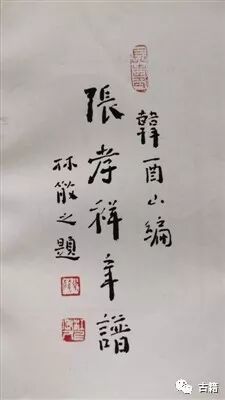 韓酉山編
張孝祥年譜
林散之題
古籍